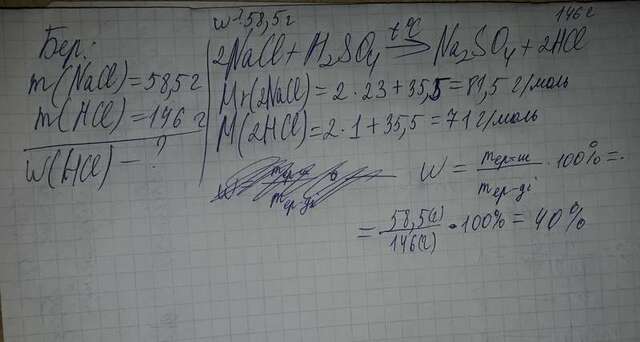 Бер:
m(NaCl)=58,5г
m(HCl)=146 г
W(HCl) - ?
58,5г
146 г
2NaCl + H₂SO₄ t°C → Na₂SO₄ + 2HCl
Mr(2NaCl) = 2 · 23 + 35,5 = 81,5 г/моль
M(2HCl) = 2 · 1 + 35,5 = 71 г/моль
· 100% =
= 58,5(г) / 146(г) · 100% = 40%